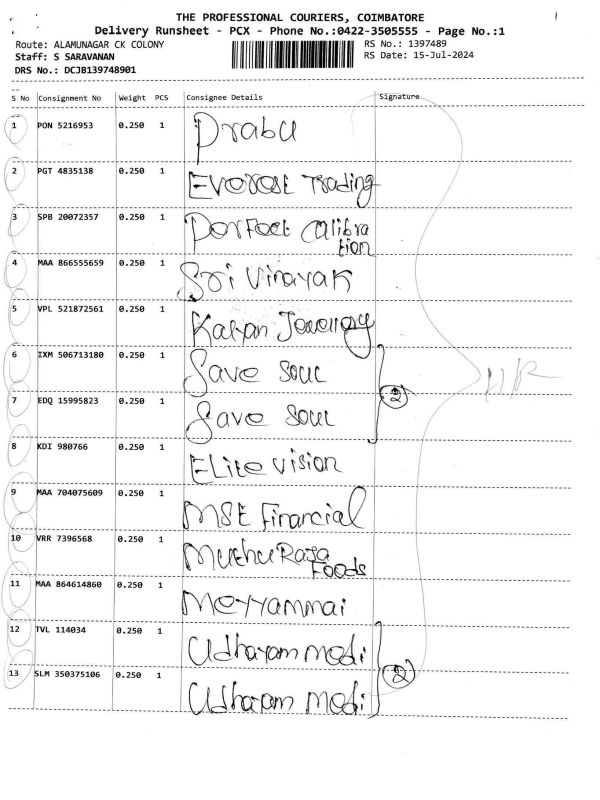 THE PROFESSIONAL COURIERS, COIMBATORE
Delivery Runsheet - PCX - Phone No.:0422-3505555 - Page No.:1
Route: ALAMUNAGAR CK COLONY RS No.: 1397489
Staff: S SARAVANAN RS Date: 15-Jul-2024
DRS No.: DCJB139748901
S No Consignment No Weight PCS Consignee Details Signature
1 PON 5216953 0.250 1 Prabu
2 PGT 4835138 0.250 1 Everest Trading
3 SPB 20072357 0.250 1 Perfect Calibra
tion
4 MAA 866555659 0.250 1 Sri Vinayak
5 VPL 521872561 0.250 1 Kalyan Jewellery
6 IXM 506713180 0.250 1 Save Soul
7 EDQ 15995823 0.250 1 Save Soul
2
8 KDI 980766 0.250 1 Elite vision
9 MAA 704075609 0.250 1 MSE Financial
10 VRR 7396568 0.250 1 Muthu Raja
Foods
11 MAA 864614860 0.250 1 Meyyammai
12 TVL 114034 0.250 1 Udhayam medi
13 SLM 350375106 0.250 1 Udhayam medi
2